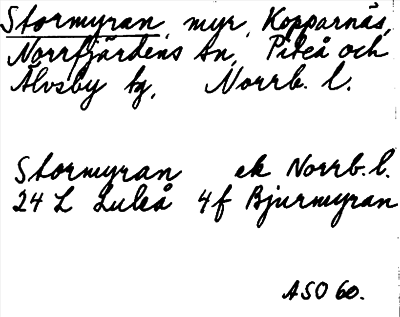 Stormyran, myr, Kopparnäs,
Norrfjärdens sn, Piteå och
Älvsby tg, Norrb. l.
Stormyran ek Norrb. l.
24 L Luleå 4f Bjurmyran
ASO 60.